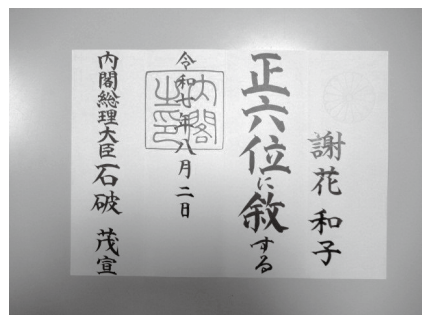 謝花 和子
正六位に敘する
令和七年八月二日
内閣之印
内閣総理大臣 石破 茂宣